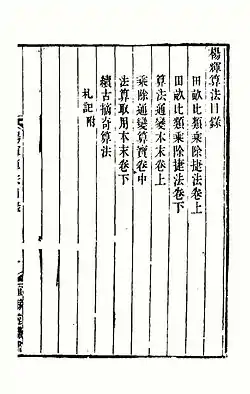 楊輝算法目錄
田畝比類乘除捷法卷上
田畝比類乘除捷法卷下
算法通變本末卷上
乘除通變算寶卷中
法算取用本末卷下
續古摘奇算法
札記附